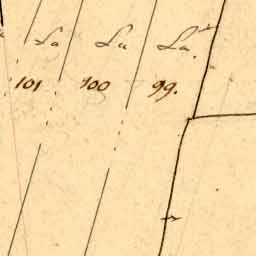 La La La.
101 100 99.